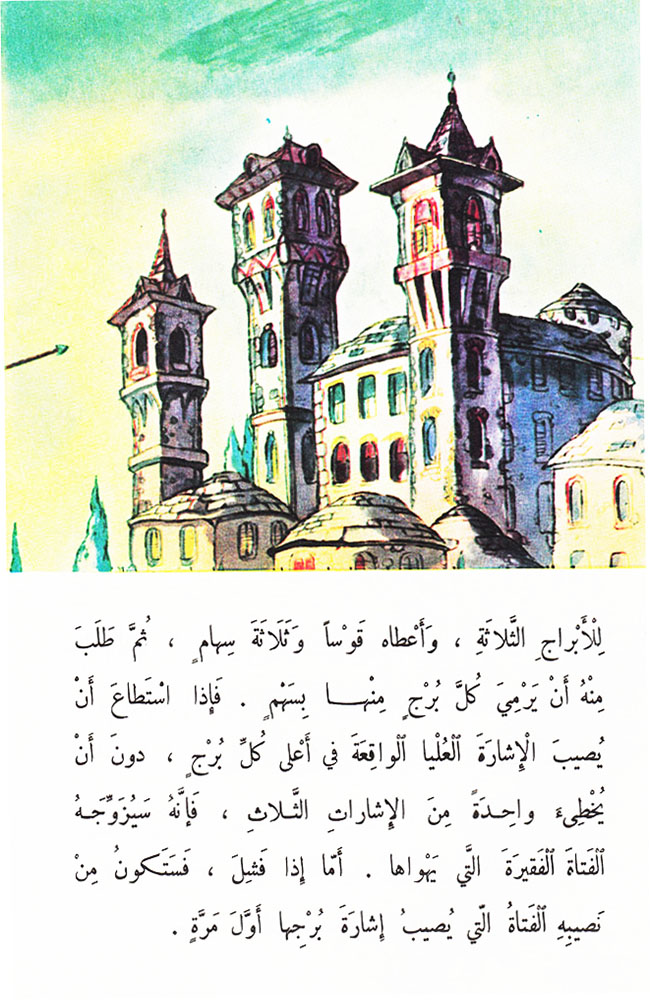 لِلْأَبْراجِ الثَّلاثَةِ ، وَأَعْطاه قَوْساً وَثَلَاثَةَ سِهامٍ ، ثُمَّ طَلَبَ
مِنْهُ أَنْ يَرْمِيَ كُلَّ بُرْجٍ مِنْهـا بِسَهْمٍ . فَإِذا اسْتَطاعَ أَنْ
يُصيبَ الْإِشارَةَ الْعُلْيا الْواقِعَةَ في أَعْلى كُلِّ بُرْجٍ ، دونَ أَنْ
يُخْطِىءَ واحِـدَةً مِنَ الإِشاراتِ الثَّـلاثِ ، فَإِنَّهُ سَيُزَوِّجُـهُ
الْفَتاةَ الْفَقيرَةَ الَّتي يَهْواها . أَمّا إِذا فَشِلَ ، فَسَتَكونُ مِنْ
نَصيبِهِ الْفَتاةُ الّتي يُصيبُ إِشارَةَ بُرْجِها أَوَّلَ مَرَّةٍ .